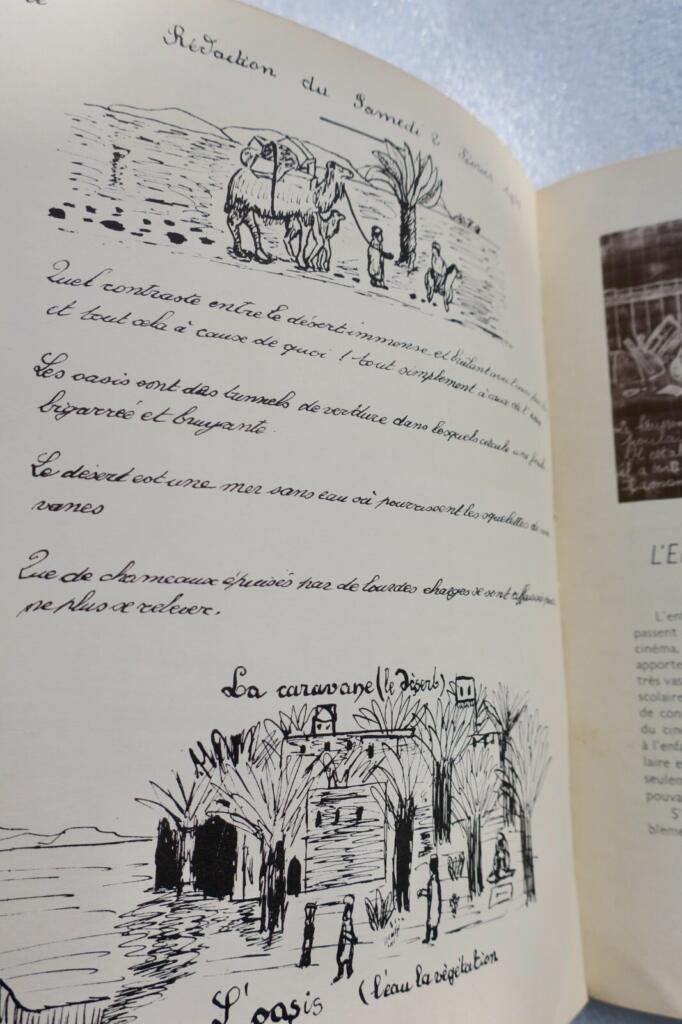 Rédaction du Samedi 2 Février
Quel contraste entre le désert immense et brûlant
et tout cela à cause de quoi ! tout simplement à cause de l'eau
Les oasis sont des tunnels de verdure dans lesquels circule une foule
bigarreé et bruyante.
Le désert est une mer sans eau où pourrissent les squelettes de
vanes
Que de chameaux épuisés par de lourdes charges se sont
ne plus se relever.
La caravane (le désert)
L'oasis (l'eau la végétation
L'E
L'enf
passent
cinéma,
apporte
très vas
scolaire
de con
du cin
à l'enfa
laire e
seulem
pouva
S'
blème